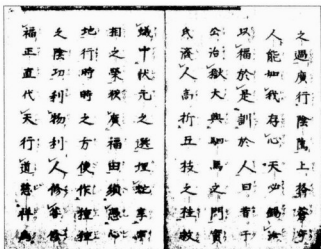 之過廣行陰隲上格蒼穹
人能如我存心天必錫汝
以福於是訓於人曰昔于
公治獄大興駟馬之門竇
氏濟人高折五枝之桂救
蟻中狀元之選埋蛇享宰
相之榮欲廣福田須憑心
地行時時之方便作種種
之陰功利物利人修善修
福正直代天行道慈祥為